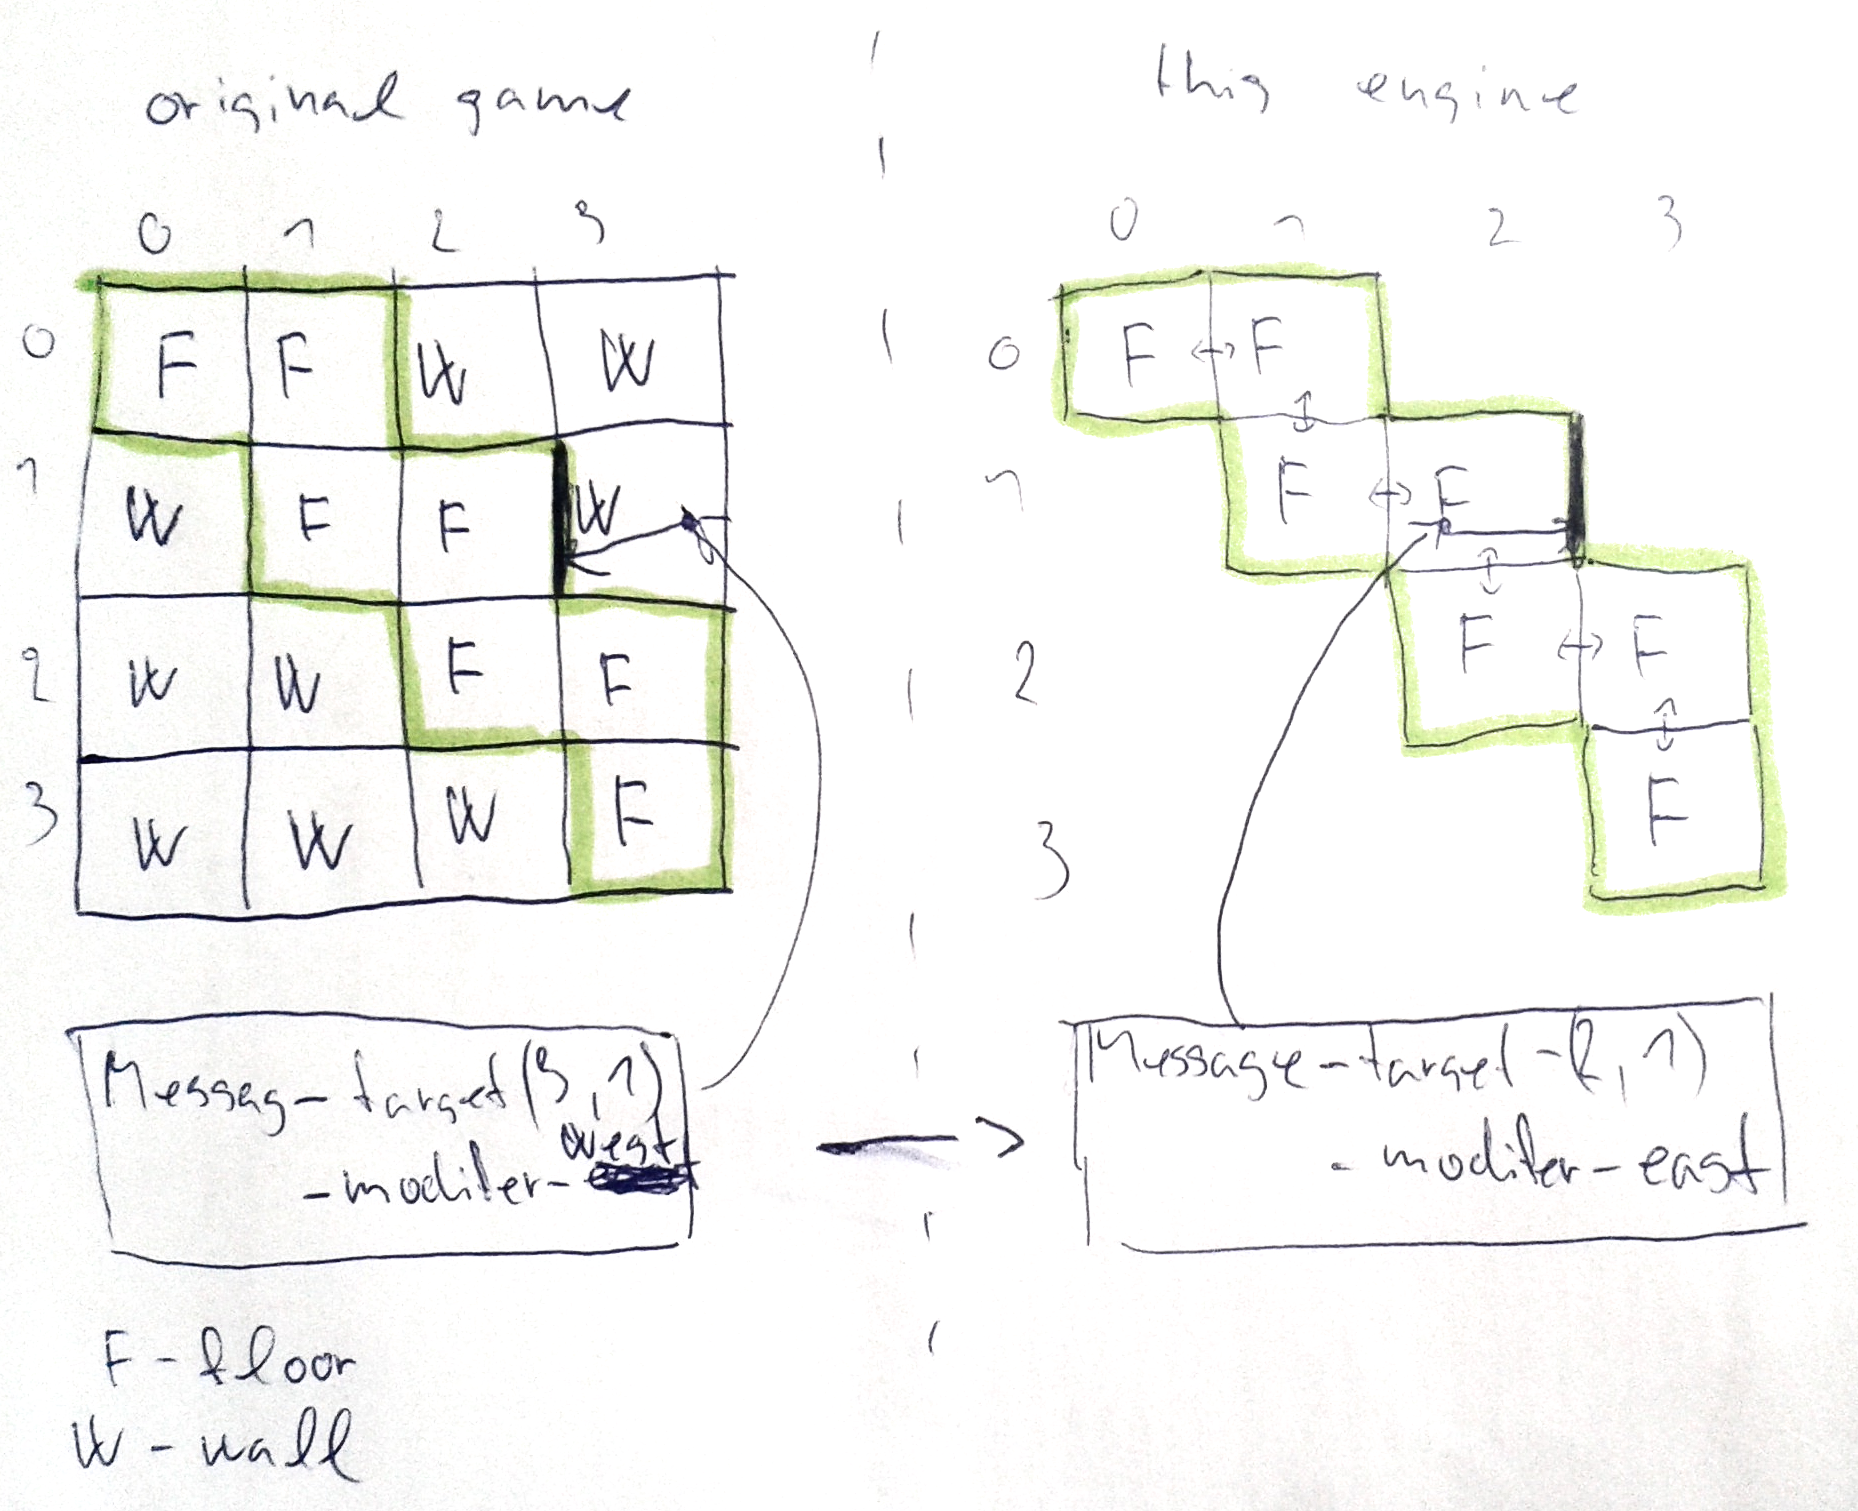 original game
0 1 2 3
0 F F W W
1 W F F W
2 W W F F
3 W W W F
Messag-target(3,1)
west
-modifer-
F-floor
W-wall
this engine
0 1 2 3
0 F F
1 F F
2 F F
3 F
Message-target-(2,1)
-modifer-east